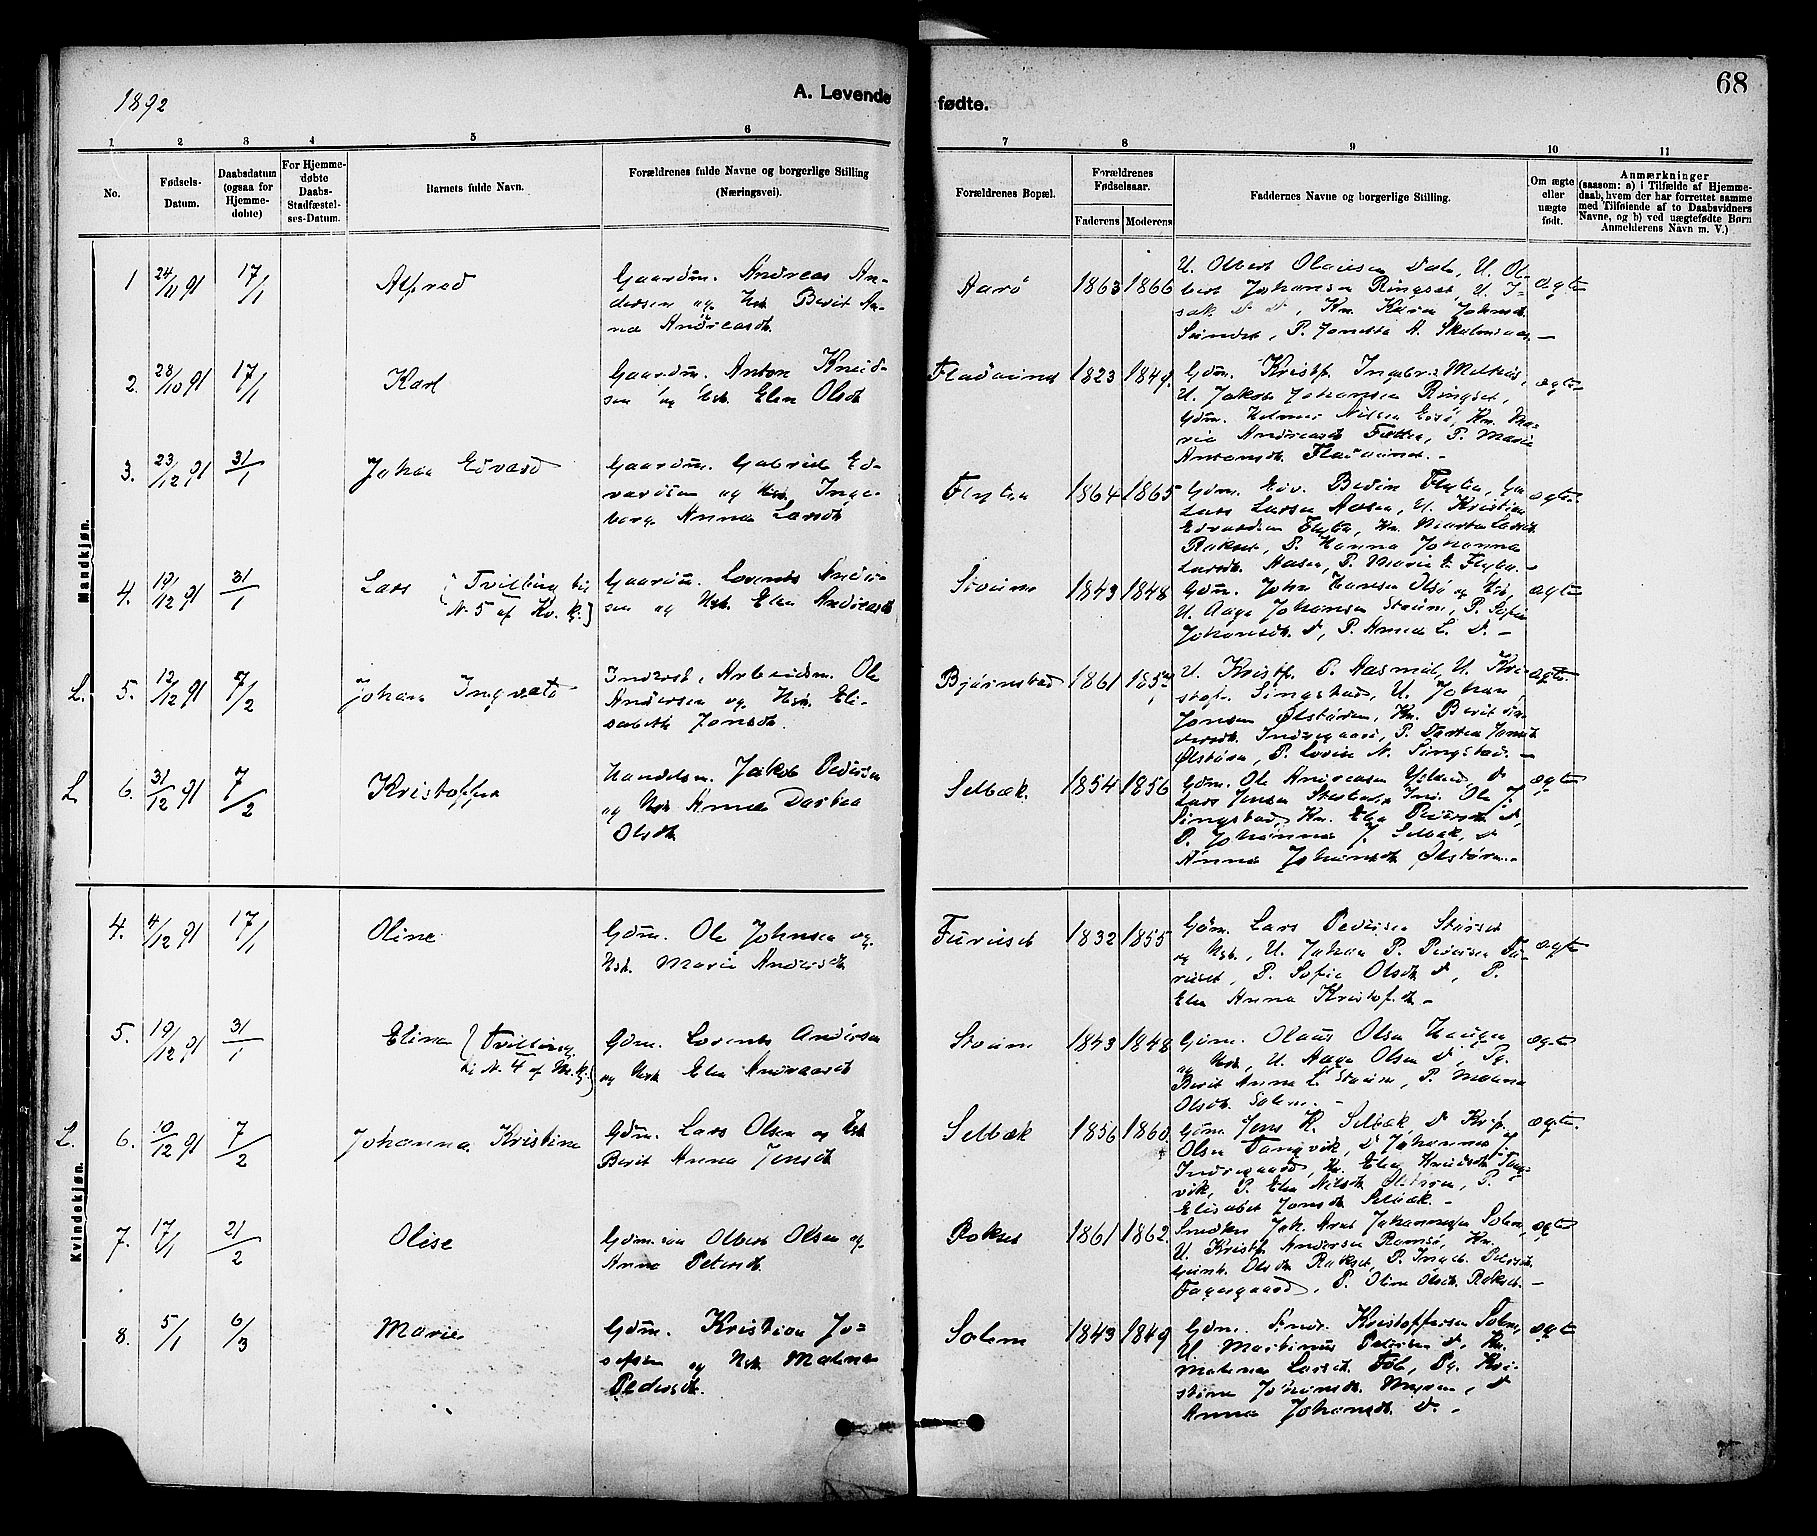 1892
A. Levende
fødte.
68
1 2 3 4 5 6 7 8 9 10 11
No.
Fødsels-
Datum.
Daabsdatum
(ogsaa for
Hjemme-
døbte)
For Hjemme-
døbte
Daabs-
Stadfæstel-
ses-Datum.
Barnets fulde Navn.
Forældrenes fulde Navne og borgerlige Stilling
(Næringsvei).
Forældrenes Bopæl.
Forældrenes
Fødselsaar.
Faderens Moderens
Faddernes Navne og borgerlige Stilling.
Om ægte
eller
uægte
født.
Anmærkninger
(saasom: a) i Tilfælde af Hjemme-
daab, hvem der har forrettet samme
med Tilføiende af to Daabsvidners
Navne, og b) ved uægtefødte Børn
Anmelderens Navn m. V.)
Mandkjøn.
1 24/11 91 17/1 Alfred
Gaardm. Andreas An-
dersen og Hst. Berit An-
na Andreasdt.
Aarø 1863 1866
Johansen Ringset, U. I-
Sundet, P. Jonetta A.
ægte
2. 28/10 91 17/1 Karl
Gaardm. Anton Knud-
sen og Hst. Elen Olsdt
1823 1849.
Gdm. Kristf.
U. Jakob Johansen Ringset,
Gdm. Nilsen Hn. Ma-
rie Andreasdt P. Marie
Antonsdt.
ægte
3. 23/12 91 31/1 Johan Edvard
Gaardm. Gabriel Ed-
vardsen og Hst. Inge-
borg Anna Larsdt
1864 1865
Lars Larsen Aasen, U. Kristian
Edvardsen
Rokset, P. Hanna Johanna
Larsdt. Aasen, P. Marie E.
ægte
4. 19/12 91 31/1 Lars (Tvilling til
N. 5 af Kv. kj.)
Gaardm. LorentsAnder-
sen og Hst. Elen Andreasdt
1843 1848
Gdm. John Hansen
U. Aage Johansen P. Sofie
Johansdt. d, P. Anna L. d. -
ægte
L. 5. 12/12 91 7/2 Johan Ingvald
Inderst, Arbeidsm. Ole
Andersen og Hst. Eli-
sabeth Jonsdt.
Bjørnstad 1861
U. Kristf. P. Aasmul, U. Kri-
stof. Singstad, U. Johan
Jonsen Ølstøren, Hn. Berit
Indregaard, P. Dortea
Ølstøren, P. Lovise N. Singstad. -
ægte
L. 6. 31/12 91 7/2 Kristoffer
Handelsm. Jakob Pedersen
og Hst Anna Dortea
Olsdt
Selbæk. 1854 1856
Gdm. Ole Andreasen
Lars Jensen Ole J.
Singstad, Hn. Elen Pedersdt d,
P. Johanna J. Selbæk, d
Anna Johansdt Ølstøren. -
ægte
Kvindekjøn.
4. 4/12 91 17/1 Oline
Gdm. Ole Johnsen og
Hst. Marie Andersdt
Furuset 1832 1855
Gdm. Lars Pedersen
og Hst., U. Johan P. Pedersen Fu-
ruset, P. Sofie Olsdt d, P.
Elen Anna Kristofsdt -
ægte
5. 19/12 91 31/1 Elina (Tvilling
til N. 4 af M. kj.)
Gdm. Lorents Andersen
og Hst Elen Andreasdt
1843 1848
Gdm. Olaus Olsen Haugen
og Hst, U. Aage Olsen d, Pg.
Berit Anna L. P. Malena
Olsdt. Solem. -
ægte
L. 6. 10/12 91 7/2 Johanna Kristine
Gdm. Lars Olsen og Hst
Berit Anna Jensdt
Selbæk 1856 1860.
Gdm. Jens K. Selbæk, d Kristf.
Olsen Tangvik, d Johannes J.
Indregaard, Hn. Elen Knudsdt Tang-
vik, P. Elen Nilsdt Ølstøren, P.
Elisabet Jonsdt Selbæk. -
ægte.
7. 17/1 21/2 Olise
Gdm. søn Olbert Olsen og
Anne Petersdt.
Rokset 1861 1862.
Snedker Joh. Arnt Johannessen Solem,
U. Kristf. Andersen Ramsø, Hn.
Olsdt Rokset, P. Pedersdt
Fagergaard, P. Oline Olsdt. Rokset. -
ægte
8. 5/1 6/3 Marie
Gdm. Kristian Jo-
sefsen og Hst. Malena
Pedersdt.
Solem 1843 1849
Gdm. Kristoffersen Solem,
U. Martinus Petersen d, Hn.
Malena Larsdt Pg. Kri-
stine Johansdt. Myren, d
Anna Johansdt. d. -
ægte